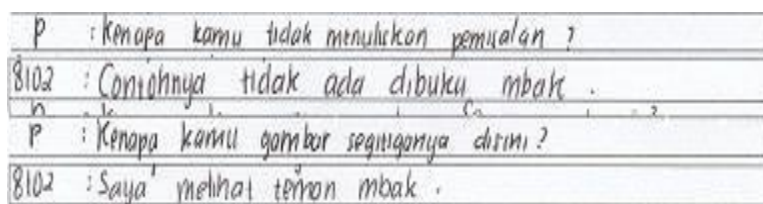 P : Kenapa kamu tidak menuliskan pemisalan ?
8102 : Contohnya tidak ada dibuku mbak .
P : Kenapa kamu gambar segitiganya disini ?
8102 : Saya melihat teman mbak .